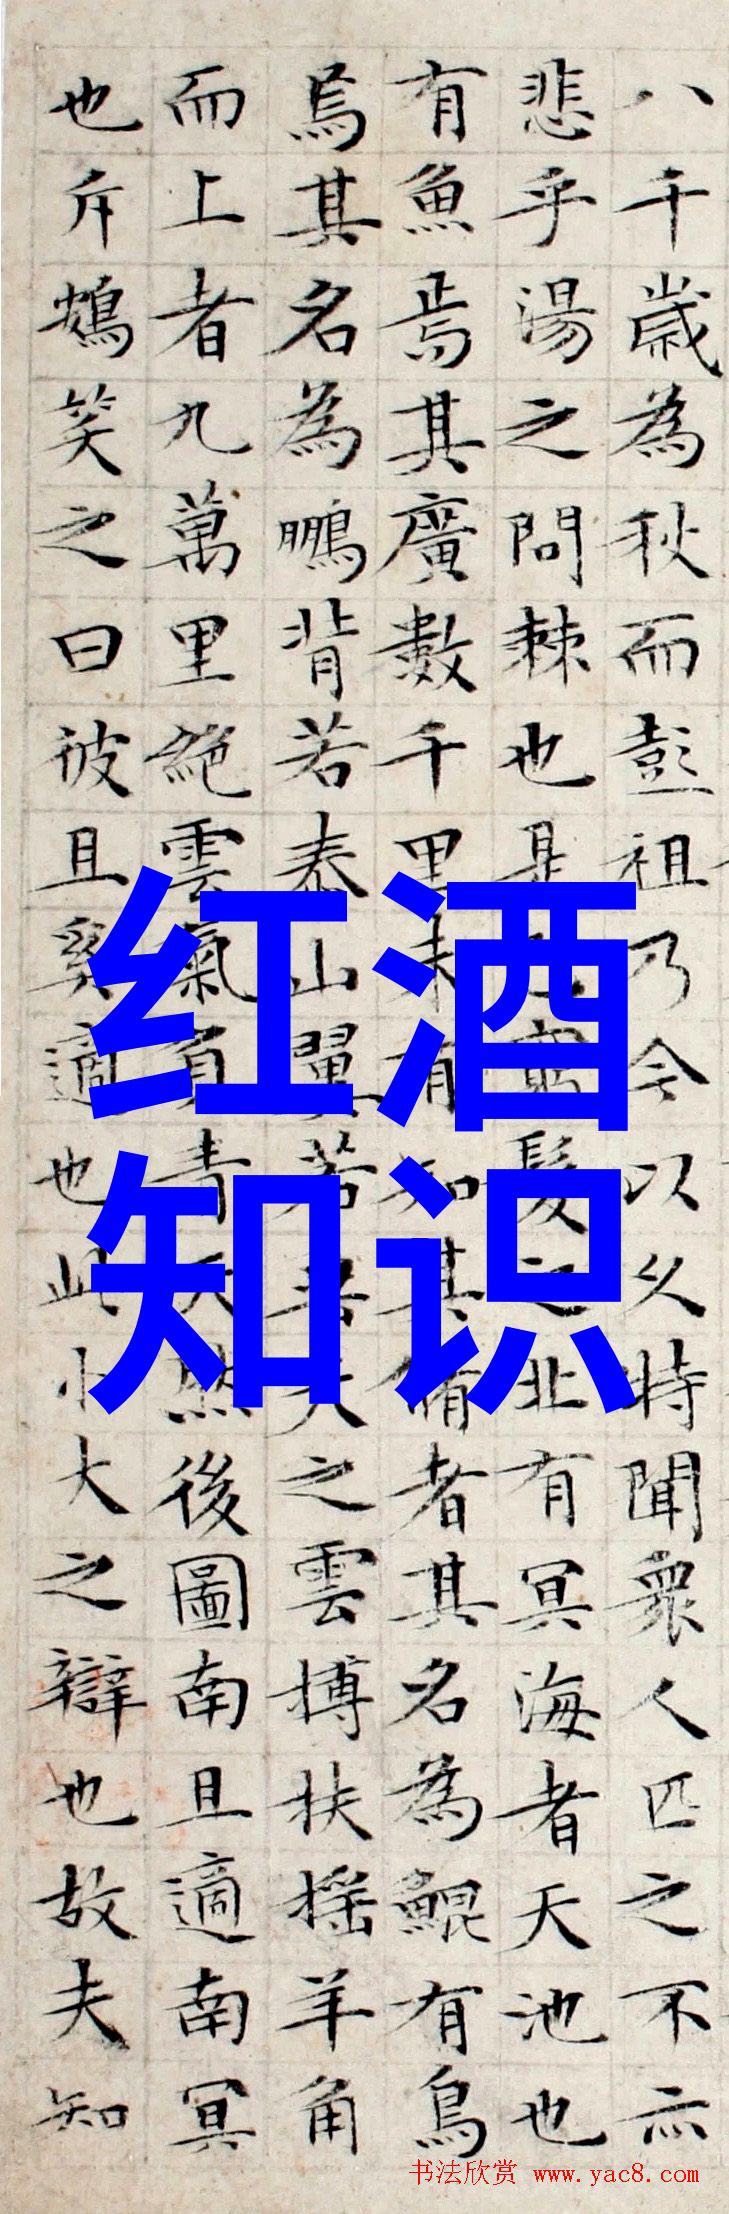 八千歲為秋而彭祖乃今以久特聞衆人匹之不亦
悲乎湯之問棘也是已窮髮之北有冥海者天池也
有魚焉其廣數千里未有知其脩者其名為鯤有鳥
焉其名為鵬背若泰山翼若垂天之雲搏扶摇羊角
而上者九萬里絶雲氣負青天然後圖南且適南冥
也斥鴳笑之曰彼且奚適也此小大之辯也故夫知
红酒
知识
书法欣赏 www.yac8.com